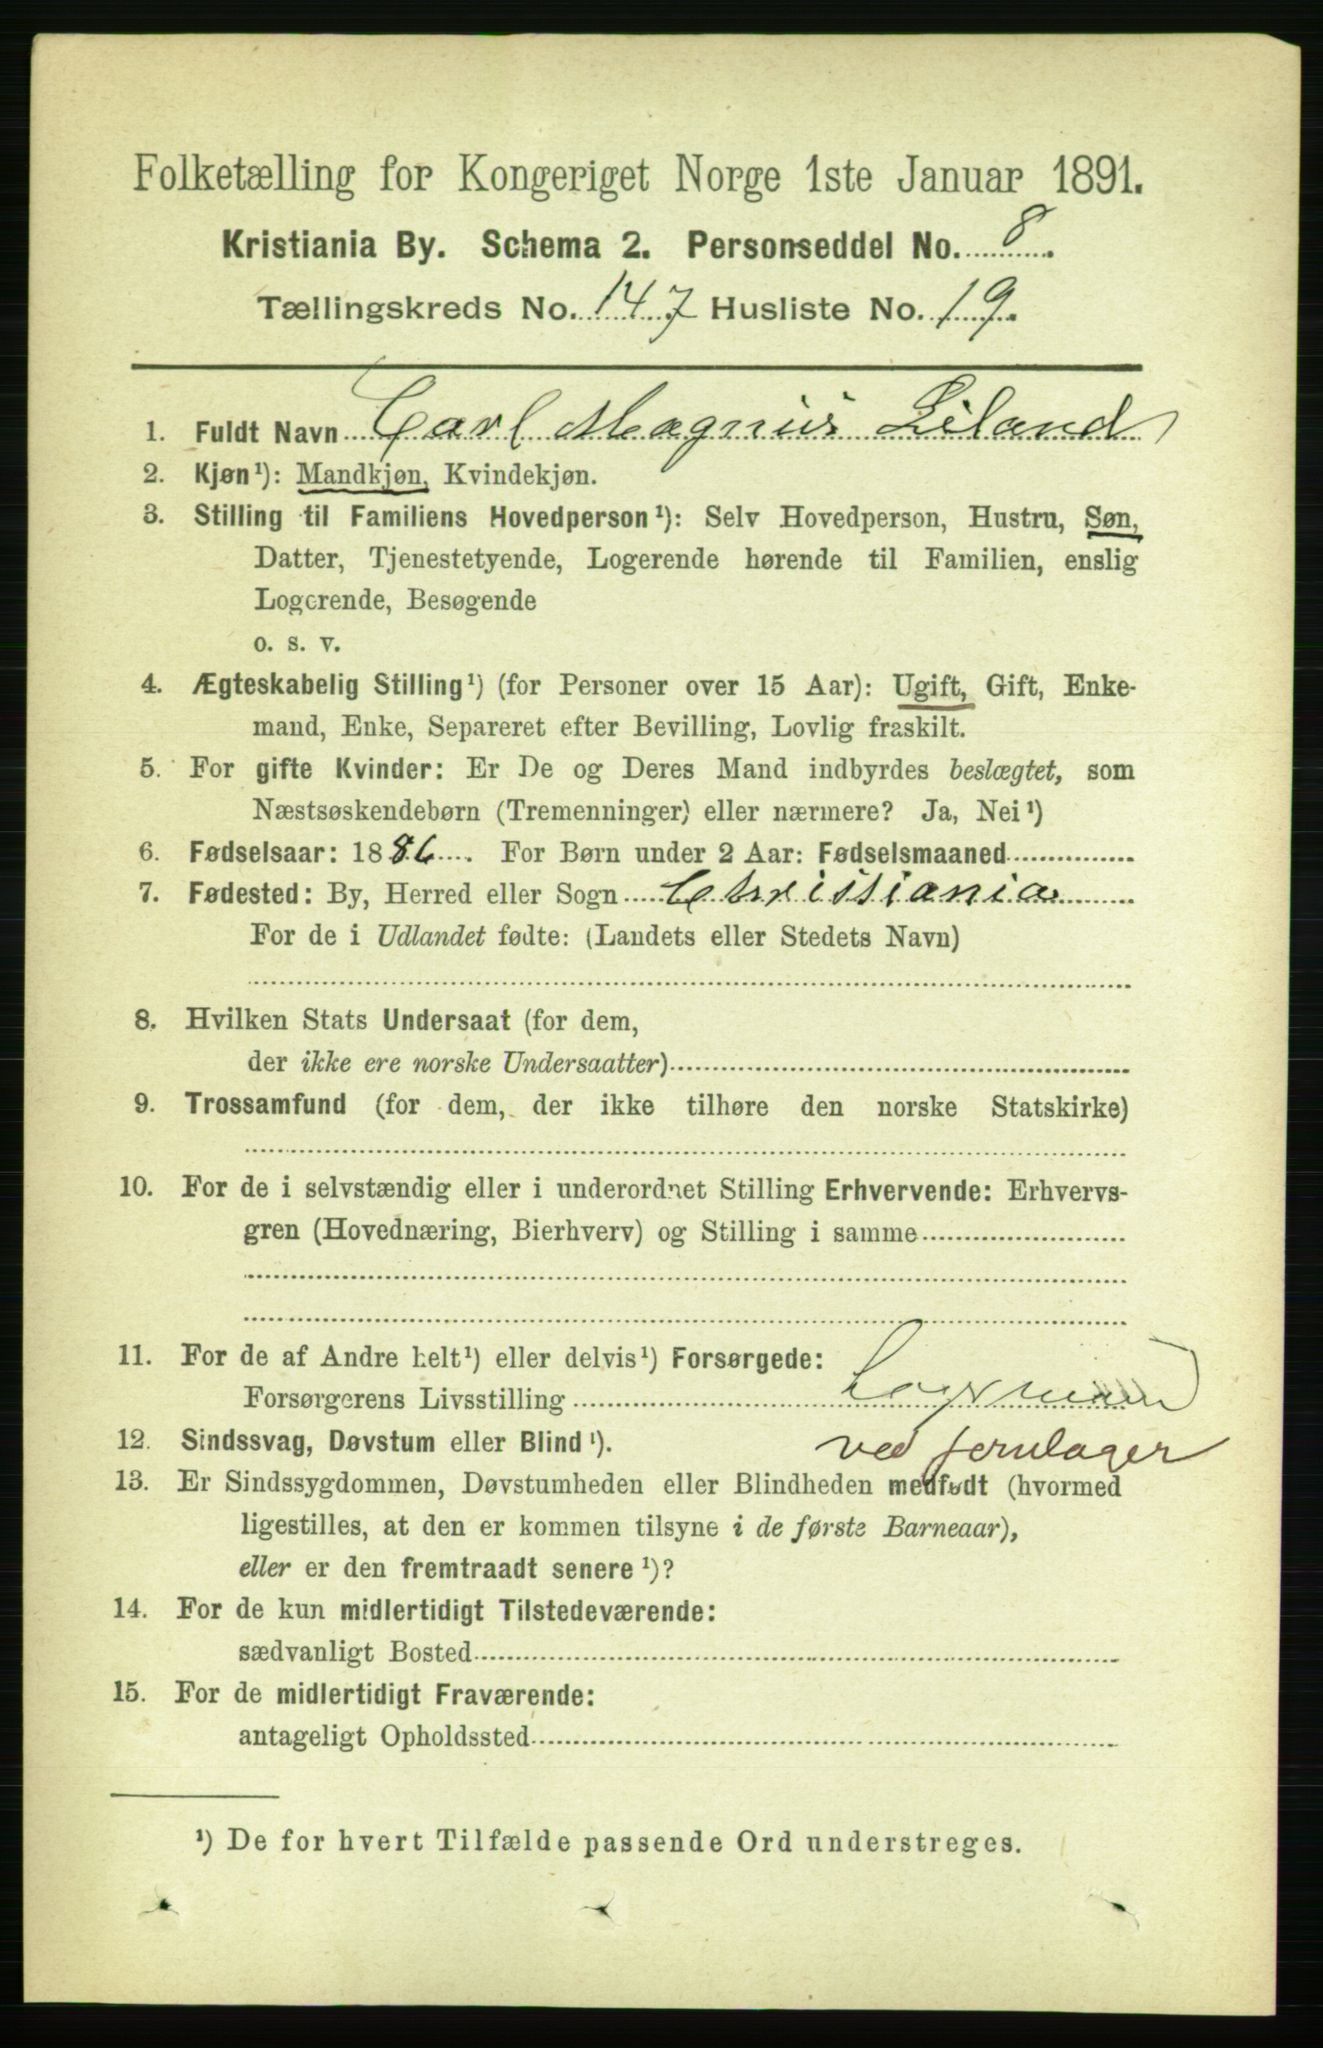 Folketælling for Kongeriget Norge 1ste Januar 1891.
Kristiania By. Schema 2. Personseddel No. 8.
Tællingskreds No. 147 Husliste No. 19.
1. Fuldt Navn Carl Magnus Liland
2. Kjøn¹): Mandkjøn, Kvindekjøn.
3. Stilling til Familiens Hovedperson¹): Selv Hovedperson, Hustru, Søn,
Datter, Tjenestetyende, Logerende hørende til Familien, enslig
Logerende, Besøgende
o. s. v.
4. Ægteskabelig Stilling¹) (for Personer over 15 Aar): Ugift, Gift, Enke-
mand, Enke, Separeret efter Bevilling, Lovlig fraskilt.
5. For gifte Kvinder: Er De og Deres Mand indbyrdes beslægtet, som
Næstsøskendebørn (Tremenninger) eller nærmere? Ja, Nei¹)
6. Fødselsaar: 1886. For Børn under 2 Aar: Fødselsmaaned
7. Fødested: By, Herred eller Sogn Christiania
For de i Udlandet fødte: (Landets eller Stedets Navn)
8. Hvilken Stats Undersaat (for dem,
der ikke ere norske Undersaatter)
9. Trossamfund (for dem, der ikke tilhøre den norske Statskirke)
10. For de i selvstændig eller i underordnet Stilling Erhvervende: Erhvervs-
gren (Hovednæring, Bierhverv) og Stilling i samme
11. For de af Andre helt¹) eller delvis¹) Forsørgede:
Forsørgerens Livsstilling
12. Sindssvag, Døvstum eller Blind¹). ved jernlager
13. Er Sindssygdommen, Døvstumheden eller Blindheden medfødt (hvormed
ligestilles, at den er kommen tilsyne i de første Barneaar),
eller er den fremtraadt senere¹)?
14. For de kun midlertidigt Tilstedeværende:
sædvanligt Bosted
15. For de midlertidigt Fraværende:
antageligt Opholdssted
¹) De for hvert Tilfælde passende Ord understreges.